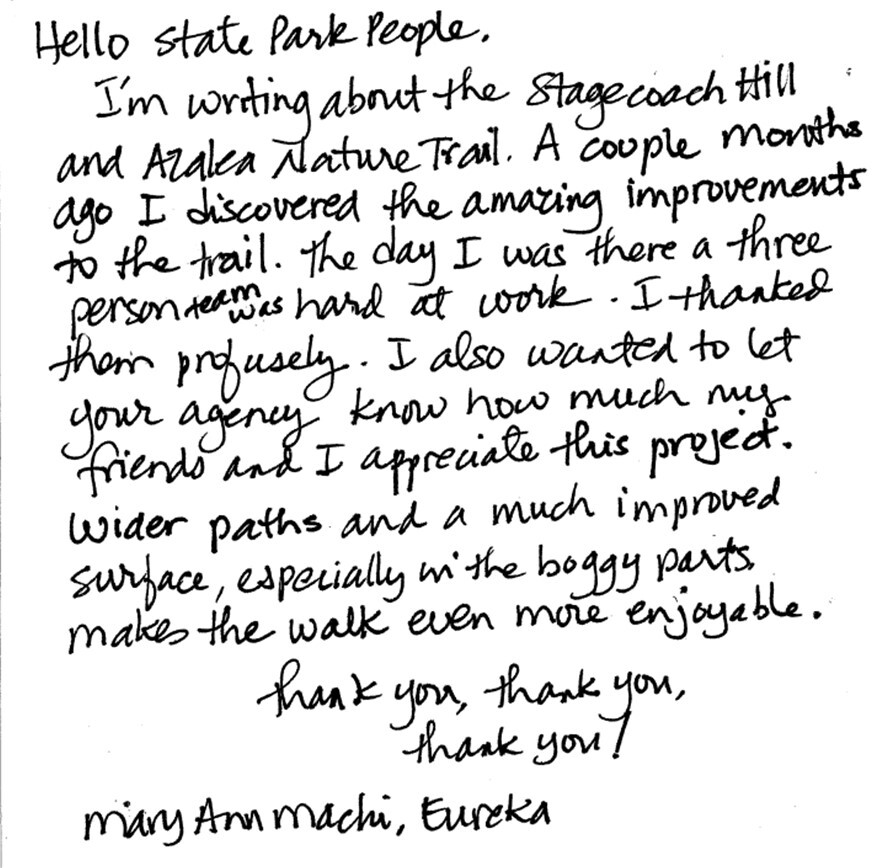 Hello State Park People.
I'm writing about the Stagecoach Hill
and Azalea Nature Trail. A couple months
ago I discovered the amazing improvements
to the trail. The day I was there a three
person team was hard at work. I thanked
them profusely. I also wanted to let
your agency know how much my
friends and I appreciate this project.
Wider paths and a much improved
surface, especially in the boggy parts,
makes the walk even more enjoyable.
Thank you, thank you,
thank you!
Mary Ann Machi, Eureka